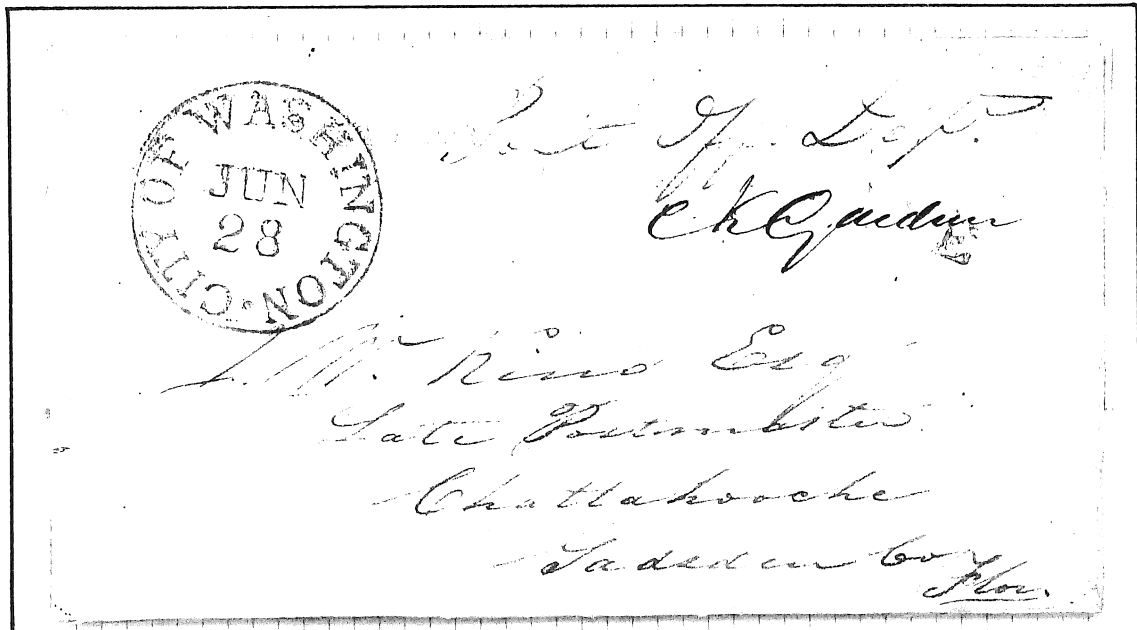 CITY OF WASHINGTON
JUN
28
Post Off. Dept.
C K Gardner
Esq
Late Postmaster
Chattahooche
Gadsden Co
Flor.